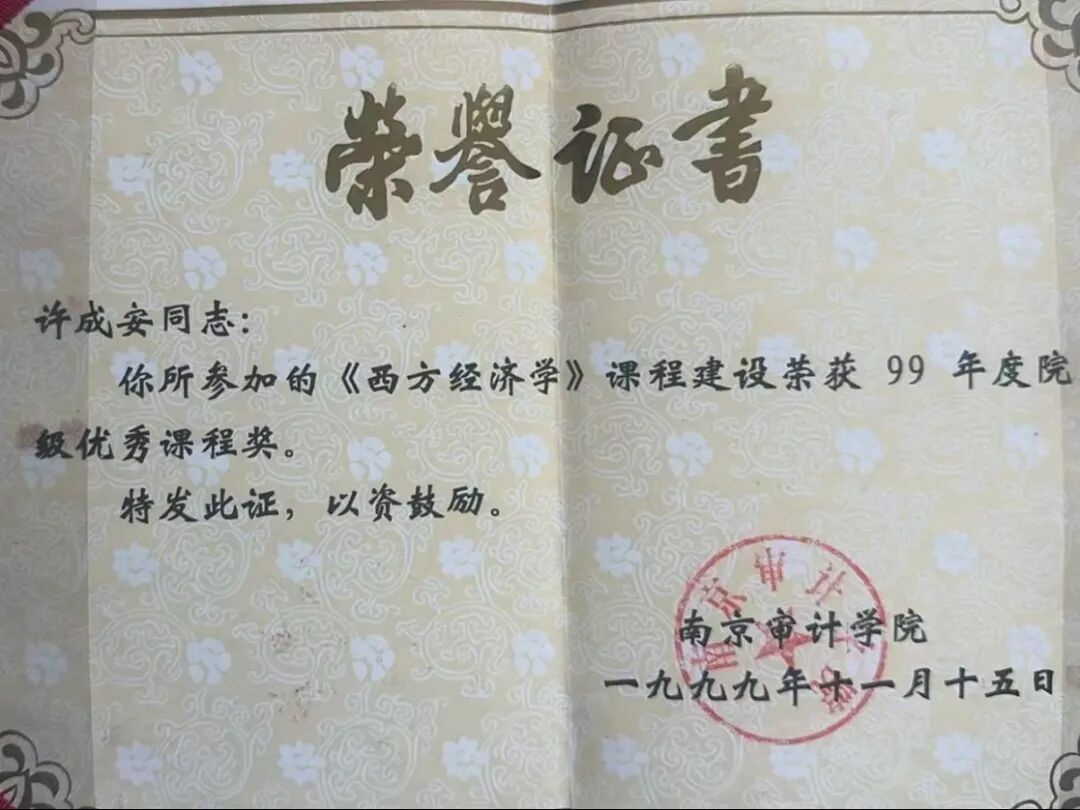 荣誉证书
许成安同志:
你所参加的《西方经济学》课程建设荣获 99 年度院
级优秀课程奖。
特发此证，以资鼓励。
南京审计学院
一九九九年十一月十五日